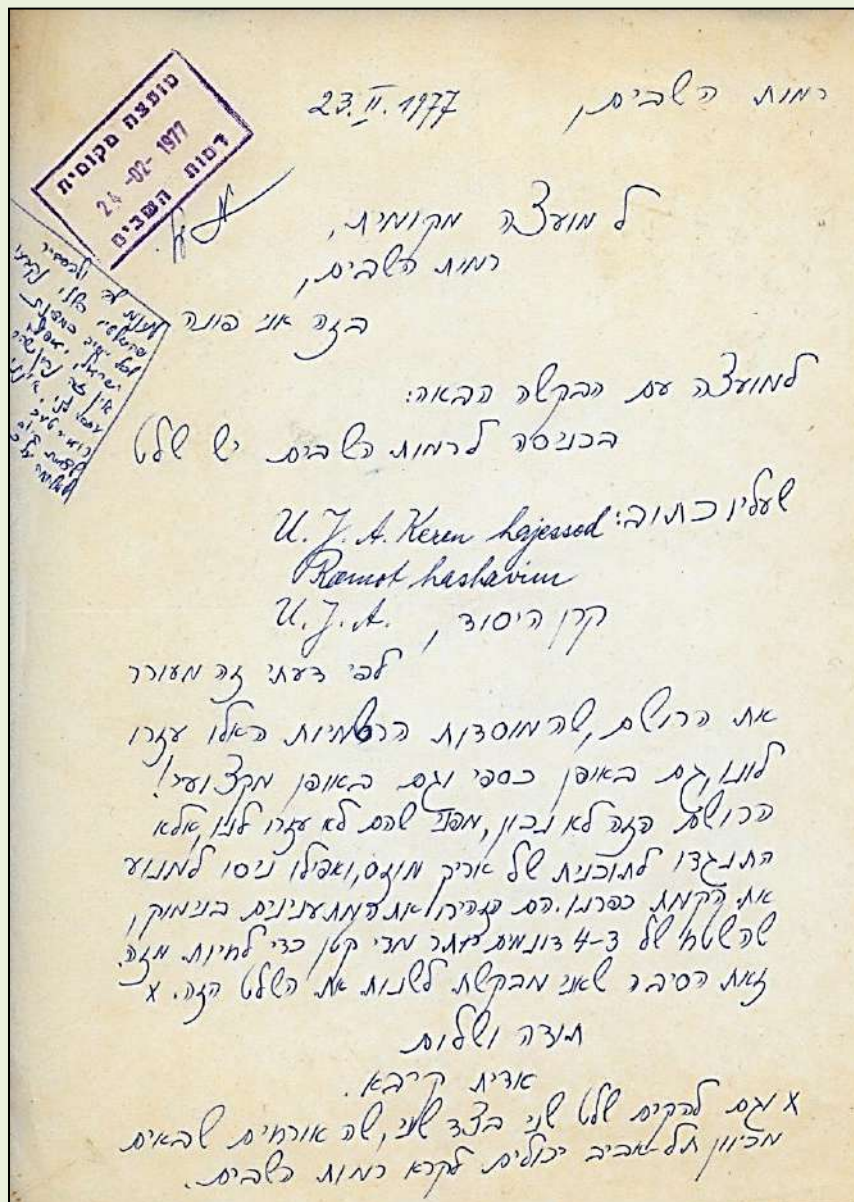 רמות השבים, 23.II.1977
מועצה מקומית
24-02-1977
רמות השבים
למועצה מקומית,
רמות השבים,
בזה אני פונה
למועצה עם הבקשה הבאה:
בכניסה לרמות השבים יש שלט
שעליו כתוב: U. J. A. Keren hajessod
Ramot hashavim
קרן היסוד, U. J. A.
לפי דעתי זה מעורר
את הרושם, שהמוסדות הרשמיות האלו עזרו
לנו, גם באופן כספי וגם באופן מקצועי!
הרושם הזה לא נכון, מפני שהם לא עזרו לנו, אלא
התנגדו לתוכנית של אריק מוזס, ואפילו ניסו למנוע
את הקמת כפרנו. הם הזהירו את המתענינים בנימוק,
שהשטח של 3-4 דונמים יותר מדי קטן כדי לחיות מזה.
זאת הסיבה שאני מבקשת לשנות את השלט הזה. x
תודה ושלום
אדית קירבא.
x וגם להקים שלט שני בצד שני, שה אורחים שבאים
מכיוון תל-אביב יכולים לקרא רמות השבים.